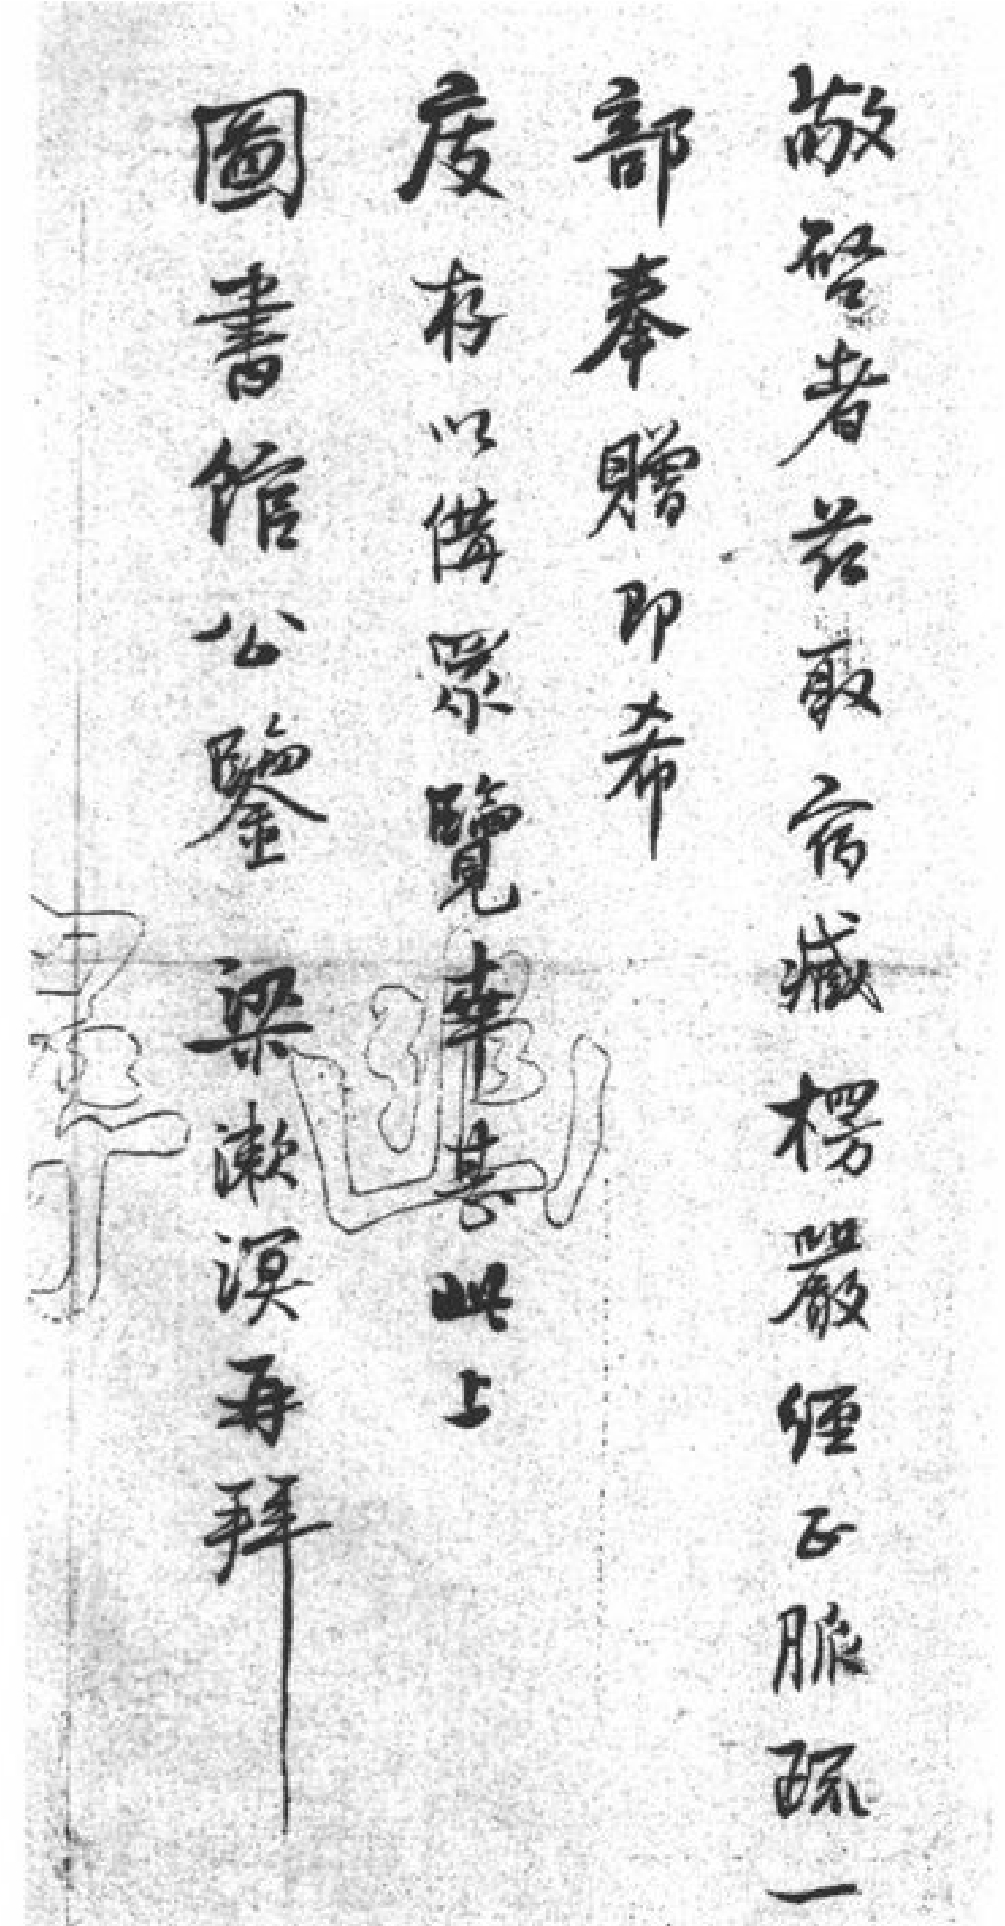 敬啓者茲取宿藏楞嚴經正脈疏一
部奉贈即希
庋存以備眾覽幸甚此上
圖書館公鑒 梁漱溟再拜